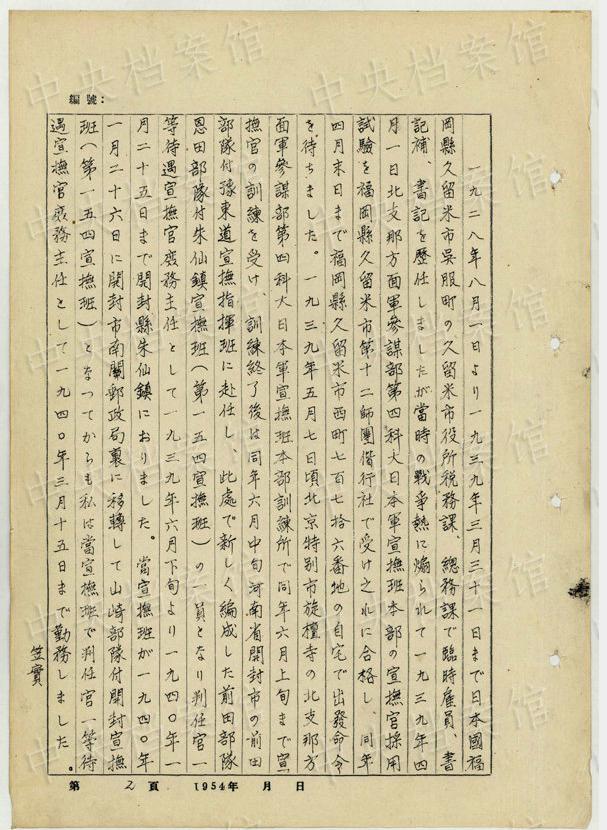 編號:
一九二八年八月一日より一九三九年三月三十一日まで日本國福
岡縣久留米市呉服町の久留米市役所税務課、總務課で臨時雇員、書
記補、書記を歴任しましたが當時の戰爭熱に煽られて一九三九年四
月一日北支那方面軍參謀部第四科大日本軍宣撫班本部の宣撫官採用
試驗を福岡縣久留米市第十二師團偕行社で受け之れに合格し、同年
四月末日まで福岡縣久留米市西町七百七拾六番地の自宅で出發命令
を待ちました。一九三九年五月七日頃北京特別市旃檀寺の北支那方
面軍參謀部第四科大日本軍宣撫班本部訓練所で同年六月上旬まで宣
撫官の訓練を受け、訓練終了後は同年六月中旬河南省開封市の前田
部隊付豫東道宣撫指揮班に赴任し、此處で新しく編成した前田部隊
恩田部隊付朱仙鎮宣撫班(第一五四宣撫班)の一員となり判任官一
等待遇宣撫官庶務主任として一九三九年六月下旬より一九四〇年一
月二十五日まで開封縣朱仙鎮におりました。當宣撫班が一九四〇年
一月二十六日に開封市南關郵政局裏に移轉して山崎部隊付開封宣撫
班(第一五四宣撫班)となつてからも私は當宣撫班で判任官一等待
遇宣撫官庶務主任として一九四〇年三月十五日まで勤務しました。
笠實
第 2 頁 1954年 月 日
中央档案馆